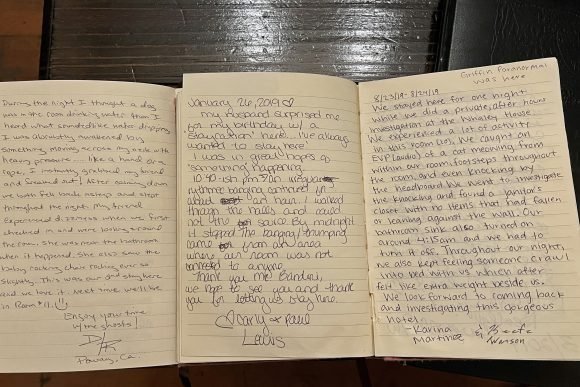 During the night I thought a dog
was in the room drinking water then I
heard what sounded like water dripping
I was abruptly awakened by
something moving across my neck with
heavy pressure.... like a hand or a
rope. I instantly grabbed my friend
and freaked out! After calming down
we both fell back asleep and slept
throughout the night. My friend
experienced dizziness when we first
checked in and were looking around
the room. She was near the bathroom
when it happened. She also saw the
baby rocking chair rocking ever so
slightly. This was our 2nd stay here
and we love it. Next time we'll be
in Room #11. (!!)
Enjoy your time
w/the ghosts!
Poway, Ca.
January 26, 2019 ♡
my husband surprised me
for my birthday w/ a
staycation here. I've always
wanted to stay here.
I was in great hopes of
something happening.
10:40 ish pm an
rythmic banging continued for
about an hour. I walked
through the halls and could
not find source. By midnight
it stopped the banging/thumping
came from an area
where our room was not
connected to anyone.
thank you Mr. Bandini,
we hope to see you and thank
you for letting us stay here.
♡ Carly & Paul
Lewis
Griffin Paranormal
was here
8/23/19 - 8/24/19
We stayed here for one night
while we did a private, after hours
investigation at the Whaley House
We experienced a lot of activity
in this room (10). We caught an
EVP (audio) of a cat meowing from
within our room, footsteps throughout
the room, and even knocking by
the headboard. We went to investigate
the knocking and found a janitor's
closet with no items that had fallen
or leaning against the wall. Our
bathroom sink also turned on
around 4:15am and we had to
turn it off. Throughout our night,
we also kept feeling someone crawl
into bed with us which after
felt like extra weight beside us.
We look forward to coming back
and investigating this gorgeous
hotel.
- Karina
Martinez
Watson